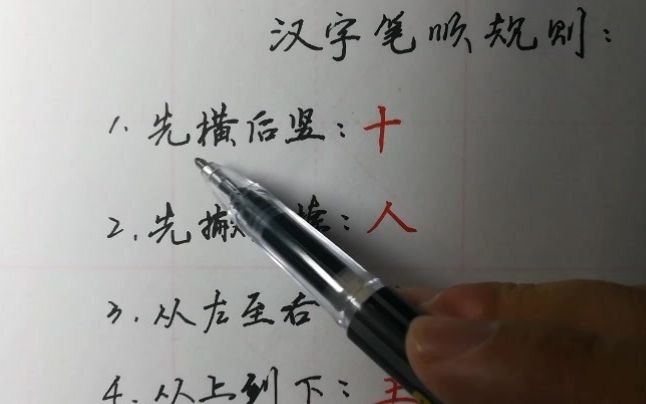 汉字笔顺规则：
1. 先横后竖：十
2. 先撇：人
3. 从左至右
4. 从上到下：